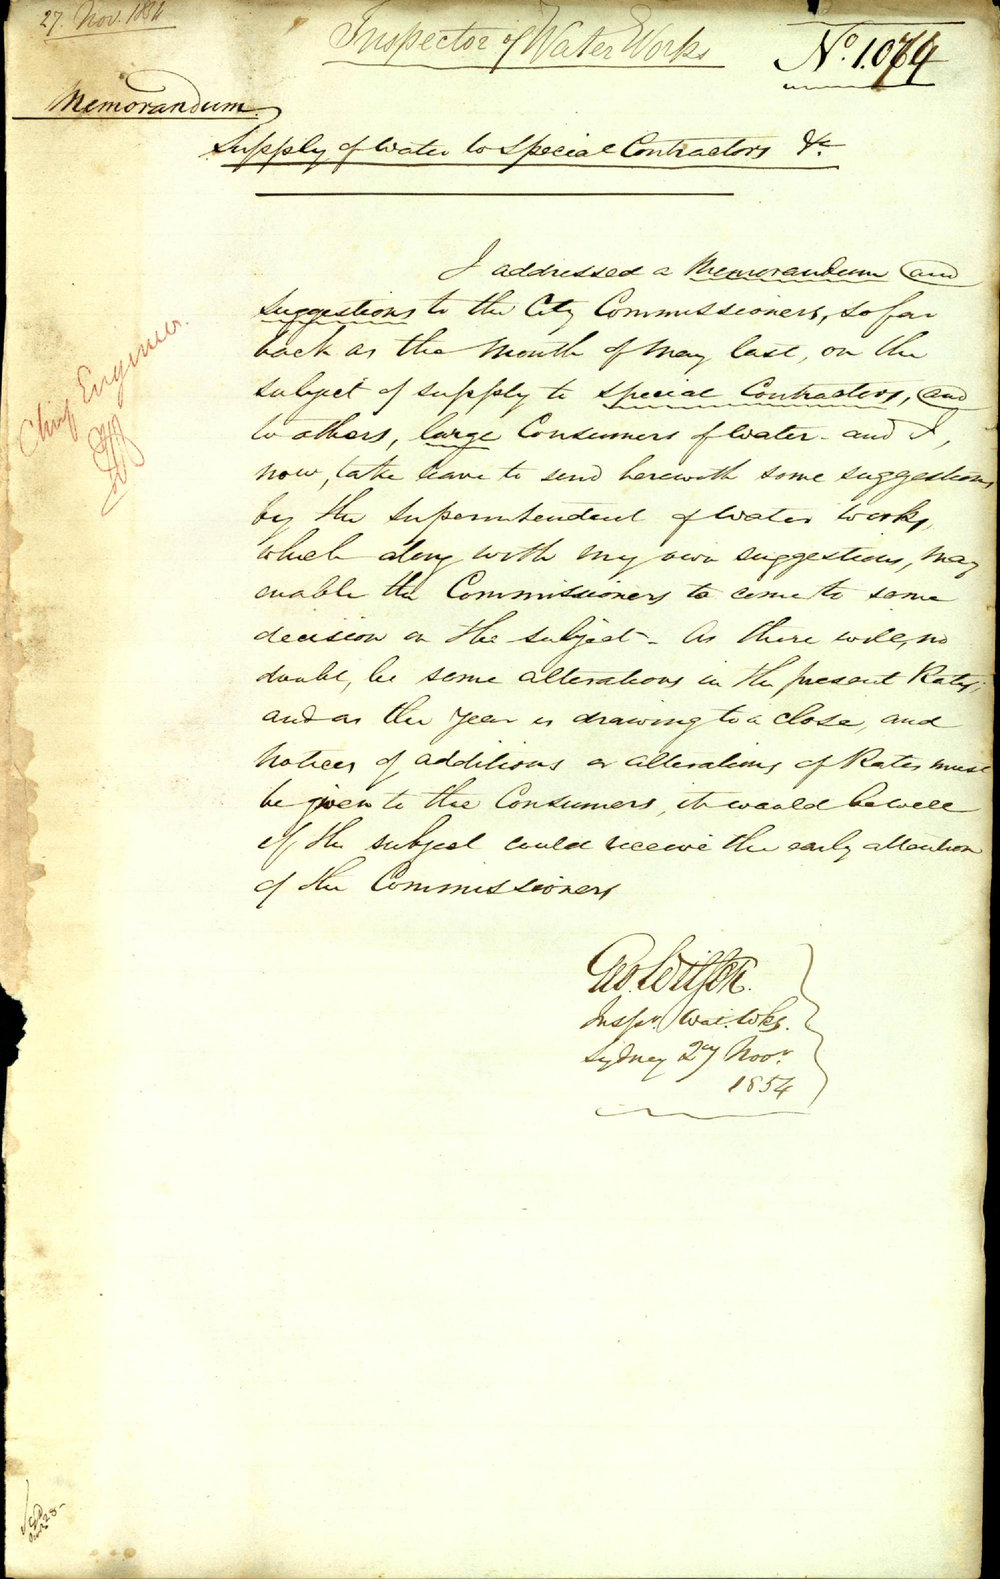 27. Nov. 1854
Inspector of Water Works
No. 1.074
Memorandum.
Supply of Water to Special Contractors &c.
I addressed a Memorandum and
suggestions to the City Commissioners, so far
back as the Month of May last, on the
subject of supply to Special Contractors, and
to others, large Consumers of Water - and I,
now, take leave to send herewith some suggestions
by the Superintendent of Water Works,
which along with my own suggestions, may
enable the Commissioners to come to some
decision on the subject - As there will, no
doubt, be some alterations in the present Rates;
and as the Year is drawing to a close, and
Notices of additions or alterations of Rates must
be given to the Consumers, it would be well
if the subject could receive the early attention
of the Commissioners
Chief Engineer.
Geo. Wilson.
Inspr. Wat. Wks.
Sydney 27 Novr.
1854